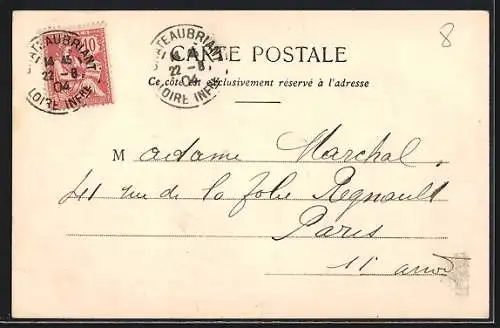 8
CHATEAUBRIANT
14 45
22 -8
04
LOIRE INFRE
10
CHATEAUBRIANT
14 45
22 -8
04
LOIRE INFRE
CARTE POSTALE
Ce côté est exclusivement réservé à l'adresse
Madame Marchal,
41 rue de la Folie Regnault
Paris
11e arrdt